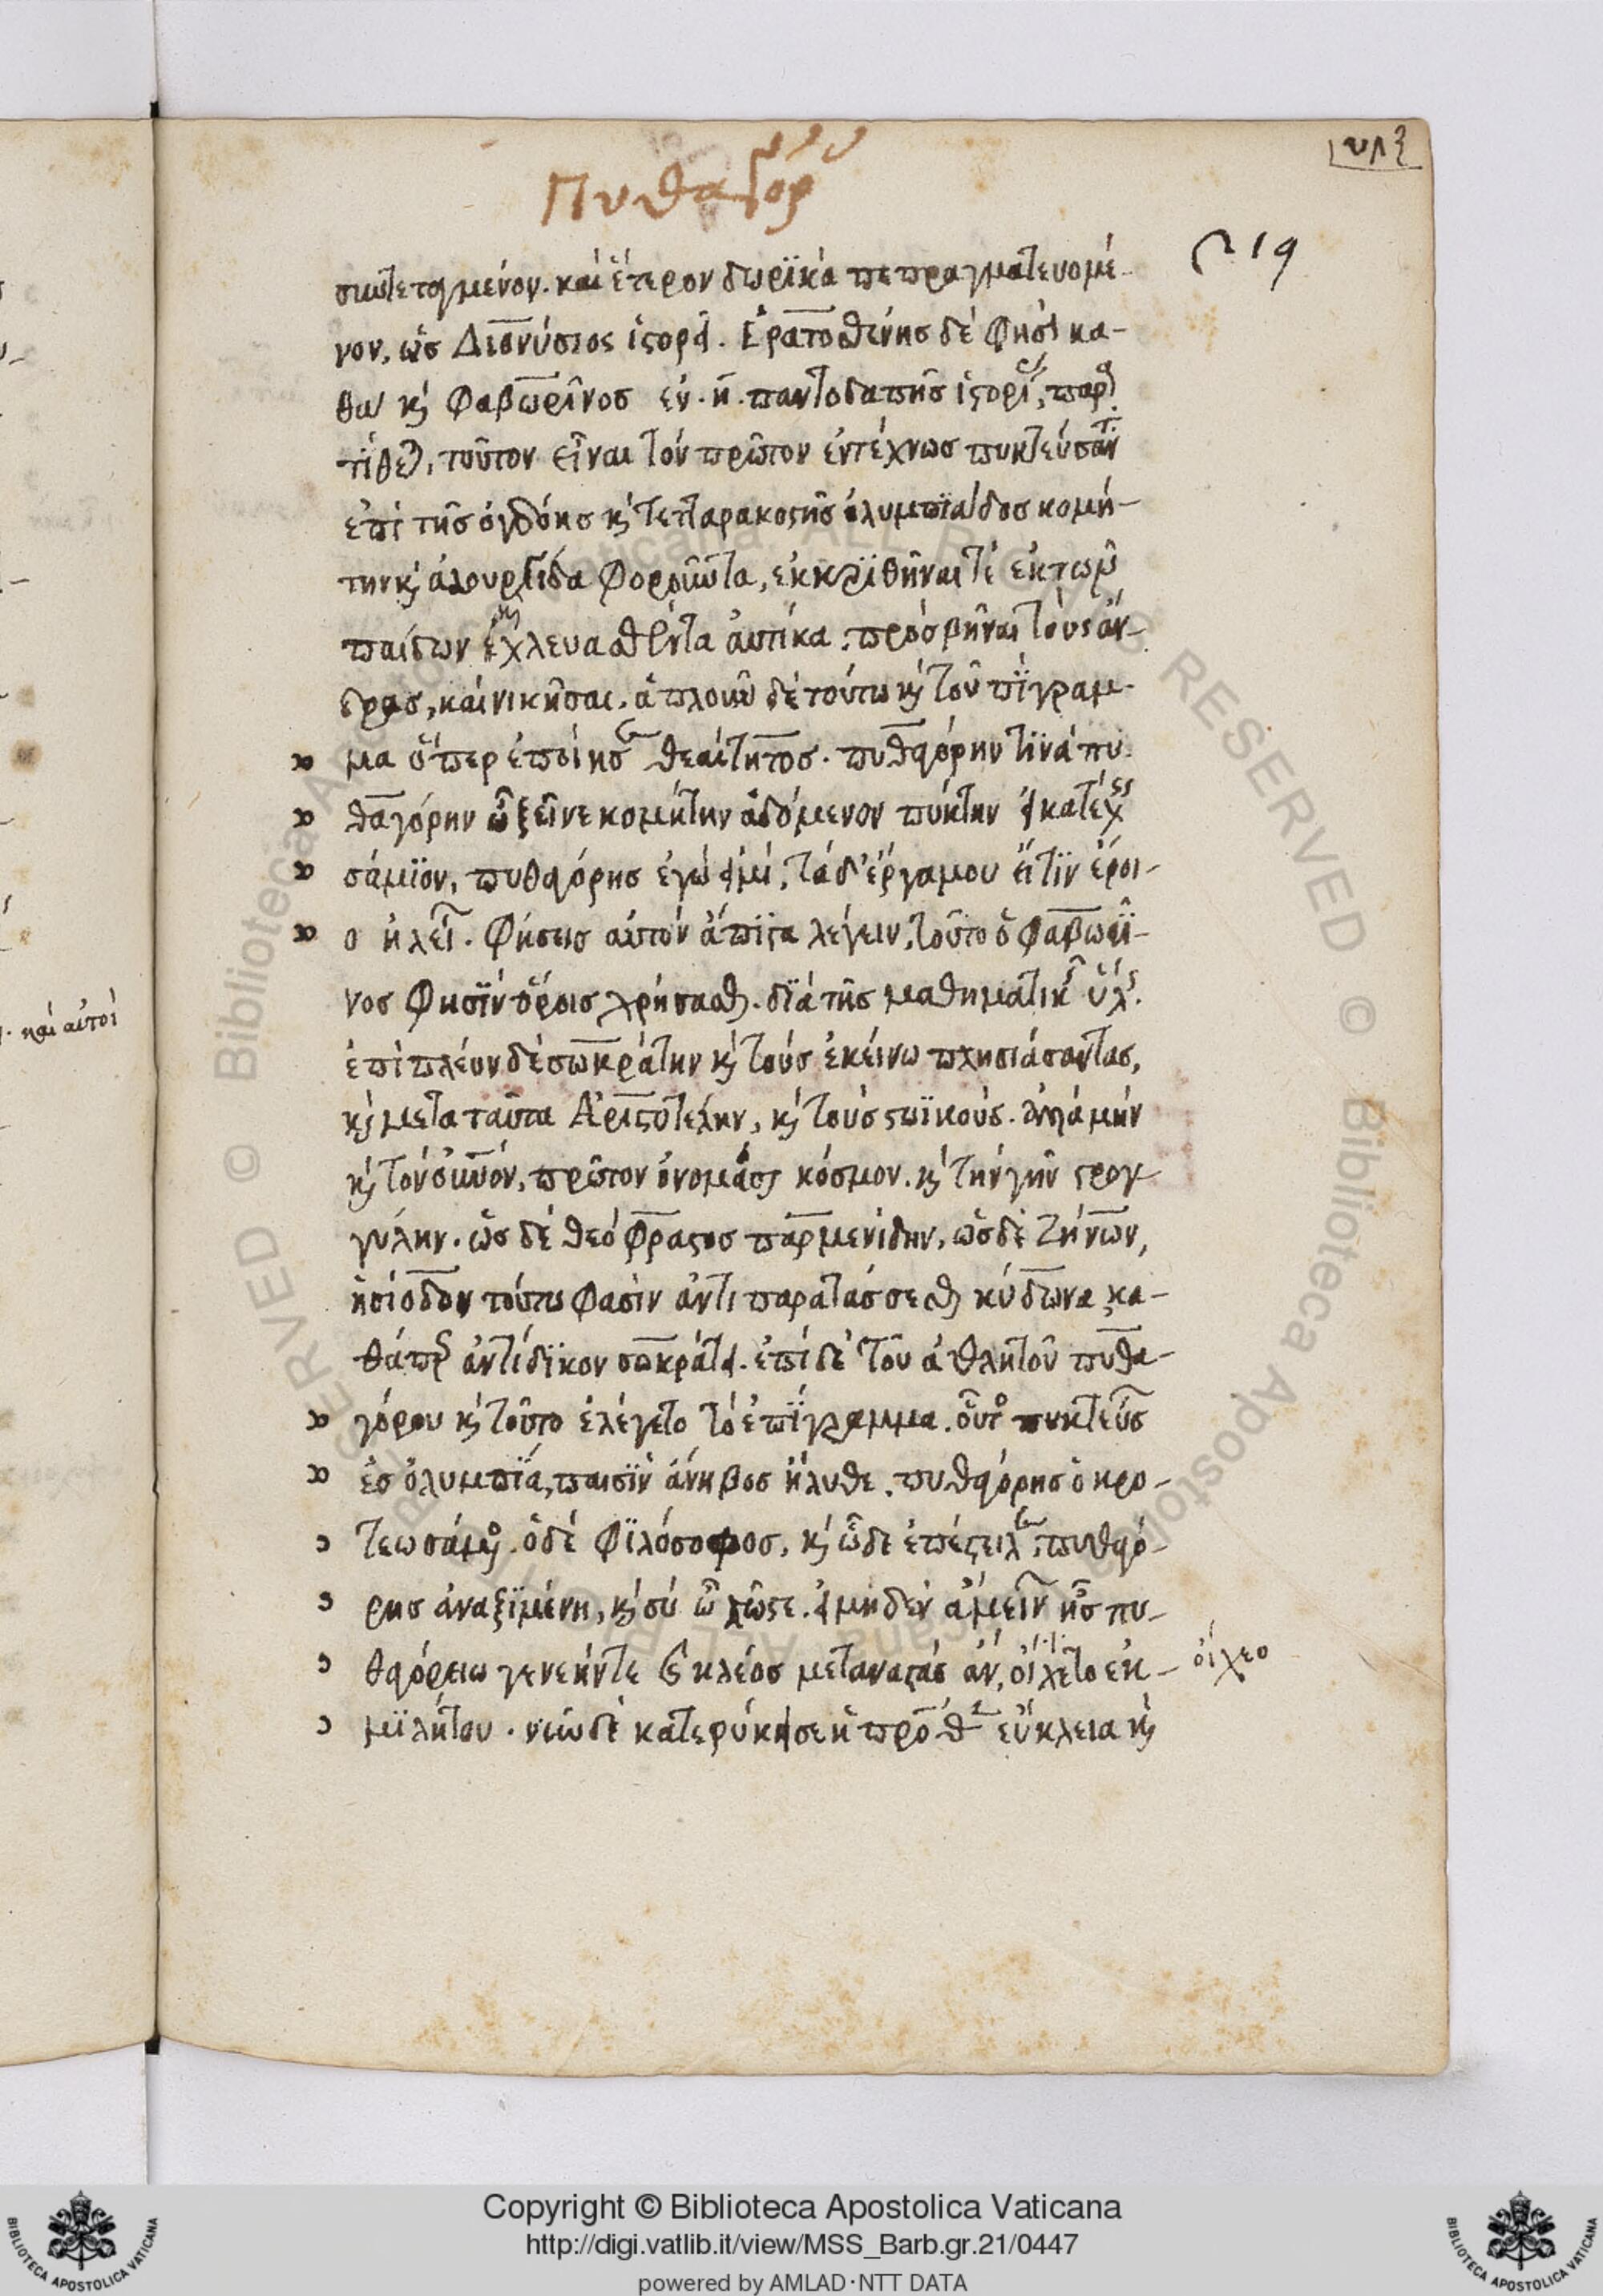 Πυθαγόρ
υλζ
219
συντεταγμένον. καὶ ἕτερον δωρϊκὰ πεπραγματευομέ-
νον, ὡς Διονύσιος ἱστορεῖ. Ἐρατοσθένης δέ φησὶ κα-
θὰ κỳ Φαβωρῖνος ἐν .η. παντοδαπῆς ἱστορί, παρα
τίθεται, τοῦτον εἶναι τὸν πρῶτον ἐντέχνως πυκτεύσαντ
ἐπὶ τῆς ὀγδόης κỳ τετταρακοστῆς ὀλυμπϊάδος κομή-
την κỳ ἁλουργίδα φοροῦντα, ἐκκρϊθῆναι τὲ ἐκ τῶν
παίδων κỳ χλευασθέντα αὐτίκα. προσβῆναι τοὺς ἄν-
δρας, καὶ νικῆσαι. δὲ τούτω κỳ τοῦπίγραμ-
μα ὅπερ ἐποίησε θεαίτητος. πυθαγόρην τϊνὰ πυ
θαγόρην ὦ ξεῖνε κομήτην ἀδόμενον πύκτην εἰ κατέχεις
σάμϊον, πυθαγόρης ἐγώ εἰμί, τὰ δ' ἔργα μου εἴ τϊν ἔροι-
ο ἠλεί. φήσεις αὐτὸν ἄπϊστα λέγειν, τοῦτο ὁ φαβωρῖ-
νος φησϊν ὅροις χρήσασθαι. δϊὰ τῆς μαθηματικῆς ὕλης.
ἐπὶ πλέον δὲ σωκράτην κỳ τοὺς ἐκείνω πλησιάσαντας,
κỳ μετὰ ταῦτα Ἀριστοτέλην, κỳ τοὺς στωϊκούς. ἀλλὰ μὴν
κỳ τὸν οὐνὸν, πρῶτον ὀνομάσαι κόσμον. κỳ τὴν γῆν στρογ-
γύλην. ὡς δὲ θεόφραστος παρμενίδην, ὡς δὲ Ζήνων,
ἡσίοδον τούτω φασὶν ἀντιπαρατάσσεσθαι κύδωνα κα-
θάπερ ἀντίδϊκον σωκράτει. ἐπὶ δὲ τοῦ ἀθλητοῦ πυθα-
γόρου κỳ τοῦτο ἐλέγετο τὸ ἐπϊγραμμα. οὗτος πυκτεύσ
ἐς ὀλυμπϊά, παισϊν ἄνηβος ἤλυθε. πυθαγόρης ὁ κρο-
τεω σάμιος. ὁ δὲ φϊλόσοφος, κỳ ὧδε ἐπέστειλε, πυθαγό-
ρης ἀναξϊμένη, κỳ σὺ ὦ λῶστε. εἰ μηδὲν ἀμείν ἦς πυ-
θαγόρεω γενεήντε κλέος μεταναστὰς ἂν, οἴχετο ἐκ-
μϊλήτου. νῦν δὲ κατερύκει σε ἡ προ εὔκλεια κỳ
οἴχεο
. καὶ αὐτοὶ
Copyright © Biblioteca Apostolica Vaticana
http://digi.vatlib.it/view/MSS_Barb.gr.21/0447
powered by AMLAD·NTT DATA